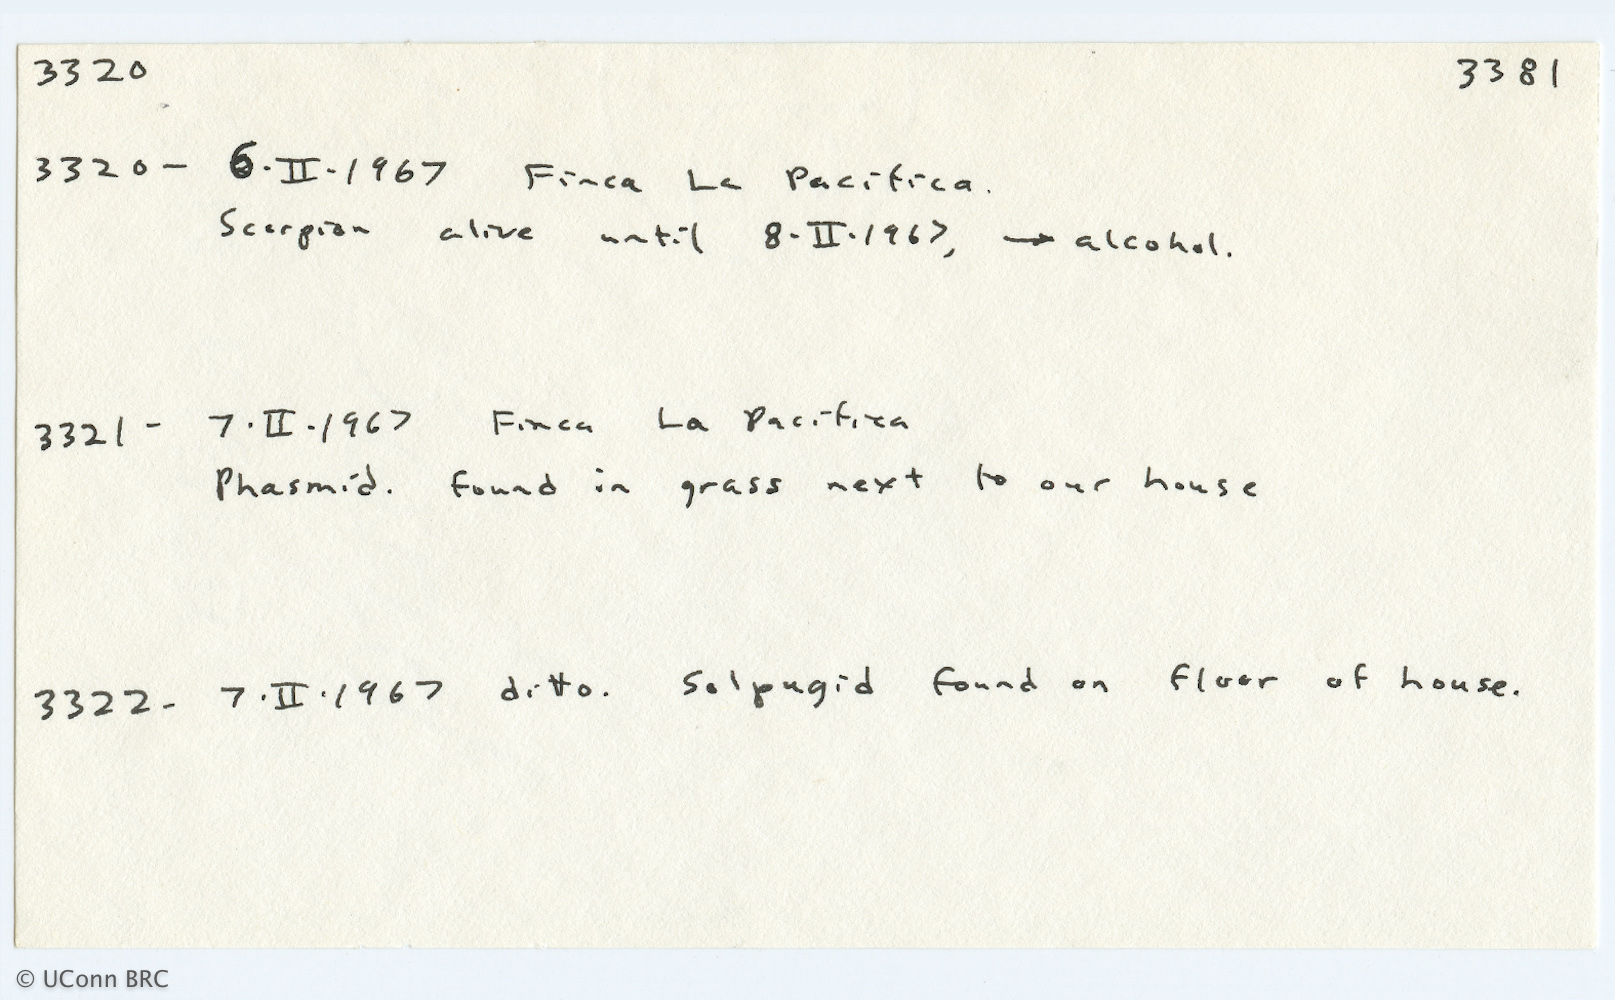 3320 3381
3320- 6·II·1967 Finca La Pacifica.
Scorpion alive until 8·II·1967, → alcohol.
3321- 7·II·1967 Finca La Pacifica
Phasmid. found in grass next to our house
3322- 7·II·1967 ditto. Solpugid found on floor of house.
© UConn BRC